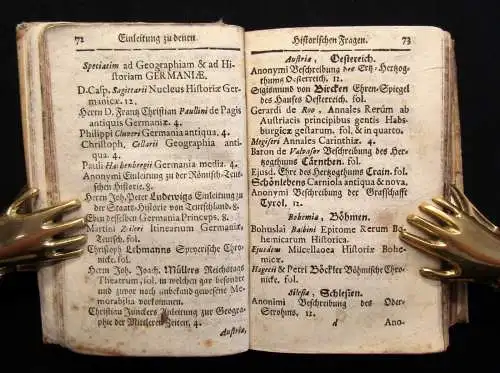 72 Einleitung zu denen
Speciatim ad Geographiam & ad Hi-
storiam GERMANIÆ.
D. Casp. Sagittarii Nucleus Historiæ Ger-
manicæ. 12.
Herrn D. Frantz Christian Paullini de Pagis
antiquis Germaniæ. 4.
Philippi Cluveri Germania antiqua. 4.
Christoph. Cellarii Geographia antiqua.
4.
Pauli Hachenbergii Germania media. 4.
Anonymi Einleitung zu der Römisch-Teut-
schen Historie. 8.
Herrn Joh. Peter Ludewigs Einleitung zu
der Staats-Historie von Teutschland. 8.
Eben desselben Germania Princeps. 8.
Martini Zileri Itinerarum Germaniæ,
Teutsch. fol.
Christoph Lehmanns Speyerische Chro-
nicke. fol.
Herrn Joh. Joach. Müllers Reichstags
Theatrum, fol. in welchen gar besonder
und zuvor noch unbekand gewesene Me-
morabilia vorkommen.
Christian Junckers Anleitung zur Geogra-
phie der Mittleren Zeiten, 4.
Austria,
Historischen Fragen. 73
Austria, Oesterreich.
Anonymi Beschreibung des Ertz-Hertzog-
thums Oesterreich. 12.
Sigismund von Bircken Ehren-Spiegel
des Hauses Oesterreich. fol.
Gerardi de Roo, Annales Rerum ab
Austriacis principibus gentis Habs-
burgicæ gestarum. fol. & in quarto.
Megiseri Annales Carinthiæ. 4.
Baron de Valvasor Beschreibung des Her-
tzogthums Cärnthen. fol.
Ejusd. Ehre des Hertzogthums Crain. fol.
Schönlebens Carniola antiqua & nova.
Anonymi Beschreibung der Graffschafft
Tyrol. 12.
Bohemia, Böhmen.
Bohuslai Balbini Epitome Rerum Bo-
hemicarum Historica.
Ejusdem Miscellaea Historiæ Bohe-
micæ.
Hagecii & Petri Böckler Böhmische Chro-
nicke. fol.
Silesia, Schlesien.
Anonimi Beschreibung des Oder-
Strohms. 12.
d Ano-